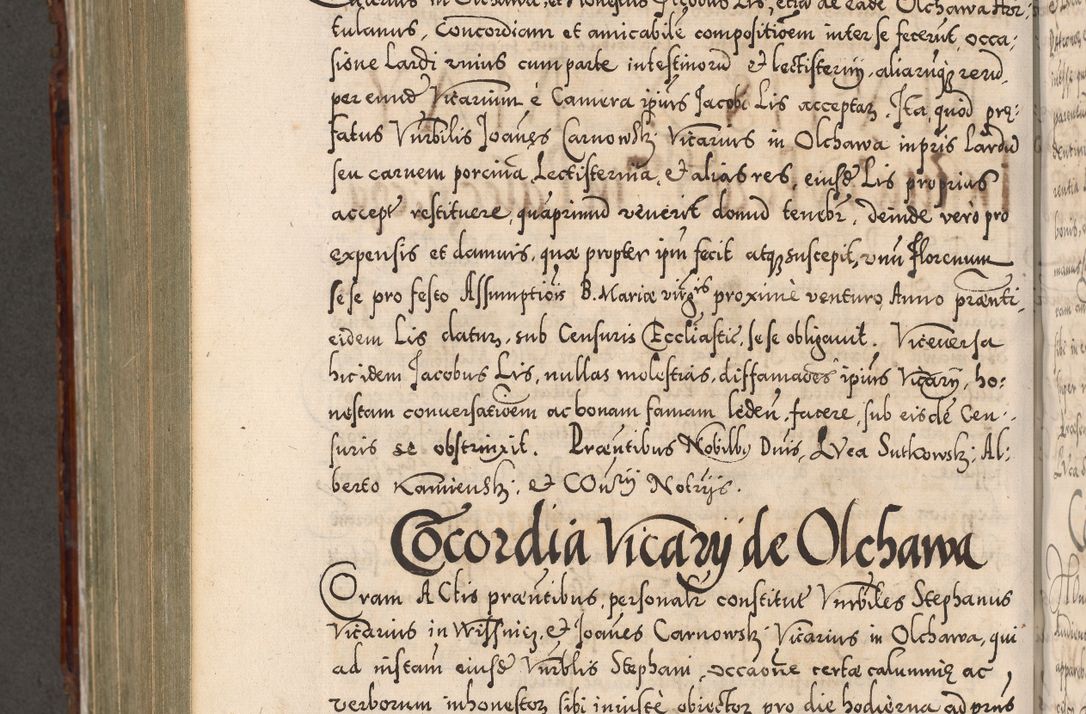 Vicarius in Olchawa, et Honestus Jacobus Lis, etiā de eadē Olchawa Hor:
tulanus, Concordiam et amicabilē compositioēm inter se fecerūt, occa:
sione Lardi unius cum parte intestinorū & lectisternij, aliarumq rerū,
per eund Vicarium è Camera ipius Jacobi Lis acceptaȝ. Ita, quod prę:
fatus Vnrbilis Joañęs Carnowskj Vicarius in Olchawa inpris Lardū
seu carnem porcinā, Lectisternia, & alias res, eiusđ Lis proprias
accept restituere, quāprimū venerit domū tenebr, deinde verò pro
expensis et damnis, quæ propter ipm̄ fecit atq suscepit, unū florenum
sese pro festo Assumptiōis B. Mariæ virgris proxime venturo Anno præñti
eidem Lis daturȝ, sub Censuris Eccliasticˢ, sese obligauit. Viceuersa
hic idem Jacobus Lis, nullas molestias, diffamaōes ipius Vicarij, ho:
nestam conuersatioēm ac bonam famam ledeñ, facere, sub eisdē Cen:
suris se obstrinxit. Præñtibus Nobilbq Dnis, Luca Sutkowskj Al:
berto Kamienskj, & Cōusij Notrijs.
Cōcordia Vicarij de Olchawa
Coram Actis præñtibus, personalr constitut Vnrbiles Stephanus
Vicarius in Wissnicȝ, & Joañes Carnowskj Vicarius in Olchawa, qui
ad instañ eiusđ Vnrblis Stephani, occaōne certæ calumniæ ac
verborum inhonestoȝ sibi iniustè obiectoȝ pro die hodierna ad prns